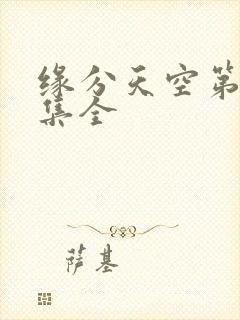 缘分天空第
集全
萨基